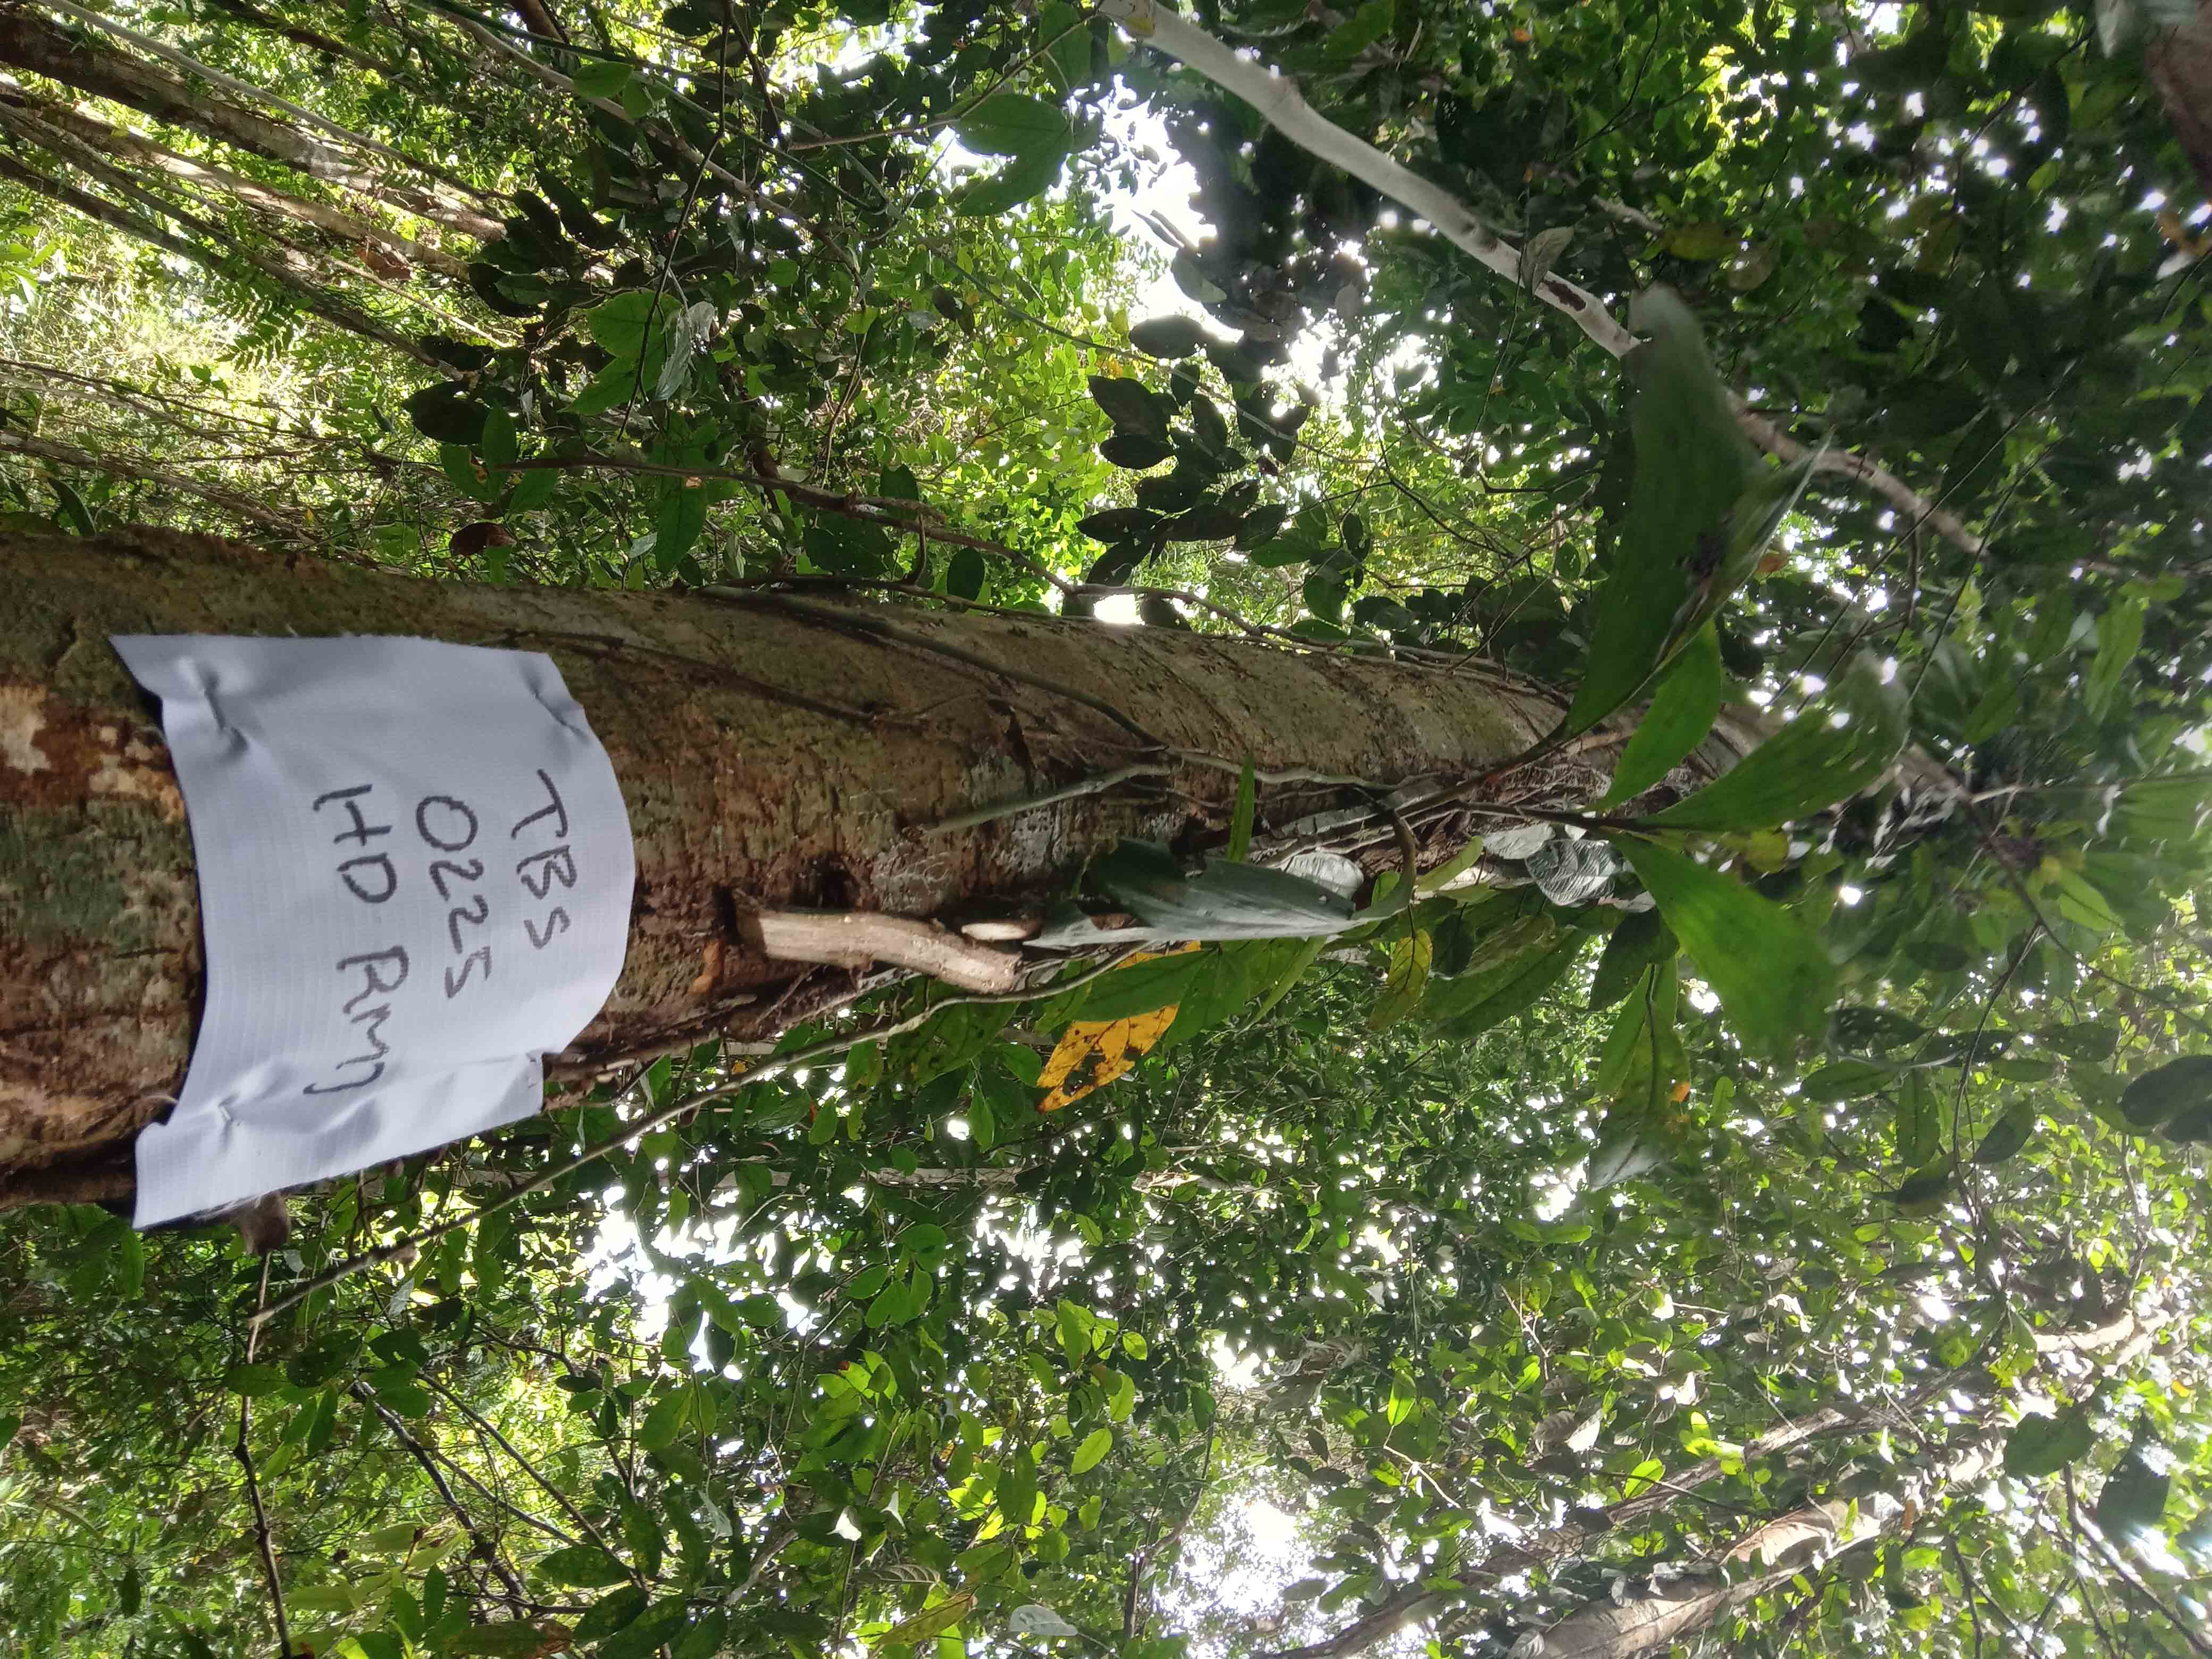 TBS
0225
HD RM7